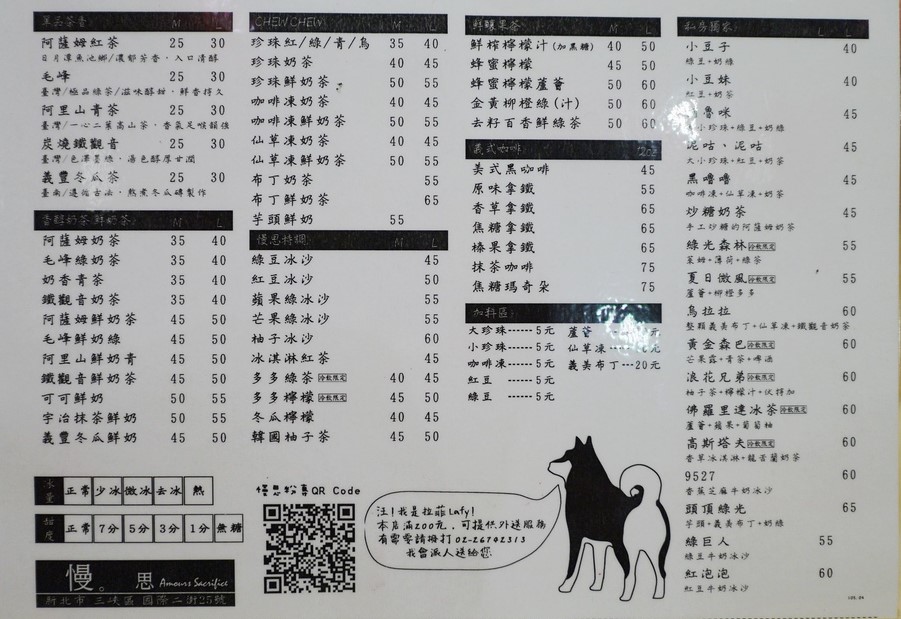 單品茶香 M L
阿薩姆紅茶 25 30
日月潭魚池鄉/濃郁芳香,入口清醇
毛峰 25 30
臺灣/極品綠茶/滋味醇甜,鮮香持久
阿里山青茶 25 30
臺灣/一心二葉高山茶,香氣足喉韻強
炭燒鐵觀音 25 30
臺灣/色澤墨綠,湯色醇厚甘潤
義豐冬瓜茶 25 30
臺南/遵循古法,熬煮冬瓜磚製作
香醇奶茶 鮮奶茶 M L
阿薩姆奶茶 35 40
毛峰綠奶茶 35 40
奶香青茶 35 40
鐵觀音奶茶 35 40
阿薩姆鮮奶茶 45 50
毛峰鮮奶綠 45 50
阿里山鮮奶青 45 50
鐵觀音鮮奶茶 45 50
可可鮮奶 50 55
宇治抹茶鮮奶 50 55
義豐冬瓜鮮奶 45 50
冰量 正常 少冰 微冰 去冰 熱
甜度 正常 7分 5分 3分 1分 無糖
慢。思 Amours Sacrifice
新北市 三峽區 國際二街25號
CHEW CHEW M L
珍珠紅/綠/青/烏 35 40
珍珠奶茶 40 45
珍珠鮮奶茶 50 55
咖啡凍奶茶 40 45
咖啡凍鮮奶茶 50 55
仙草凍奶茶 40 45
仙草凍鮮奶茶 50 55
布丁奶茶 55
布丁鮮奶茶 65
芋頭鮮奶 55
慢思特調 M L
綠豆冰沙 45
紅豆冰沙 50
蘋果綠冰沙 55
芒果綠冰沙 55
柚子冰沙 60
冰淇淋紅茶 45
多多綠茶 冷飲限定 40 45
多多檸檬 冷飲限定 45 50
冬瓜檸檬 40 45
韓國柚子茶 45 50
慢思粉專QR Code
汪!我是拉菲Lafy!
本店滿200元,可提供外送服務
有需要請撥打 02-26742313
我會派人送給您
鮮釀果茶 M L
鮮榨檸檬汁(加黑糖) 40 50
蜂蜜檸檬 45 50
蜂蜜檸檬蘆薈 50 60
金黃柳橙綠(汁) 50 60
去籽百香鮮綠茶 50 60
義式咖啡
美式黑咖啡 45
原味拿鐵 55
香草拿鐵 65
焦糖拿鐵 65
榛果拿鐵 65
抹茶咖啡 75
焦糖瑪奇朵 75
加料區
大珍珠------5元 蘆薈
小珍珠------5元 仙草凍
咖啡凍------5元 義美布丁---20元
紅豆 ------5元
綠豆 ------5元
私房獨家 L
小豆子 40
綠豆+奶綠
小豆妹 40
紅豆+奶茶
魯咪 45
小珍珠+綠豆+奶綠
泥咕、泥咕 45
大小珍珠+紅豆+奶茶
黑嚕嚕 45
咖啡凍+仙草凍+奶茶
炒糖奶茶 45
手工炒糖的阿薩姆奶茶
綠光森林 冷飲限定 55
萊姆+薄荷+綠茶
夏日微風 冷飲限定 55
蘆薈+柳橙多多
烏拉拉 60
整顆義美布丁+仙草凍+鐵觀音奶茶
黃金森巴 冷飲限定 60
芒果露+青茶+啤酒
浪花兄弟 冷飲限定 60
柚子茶+檸檬汁+伏特加
佛羅里達冰茶 冷飲限定 60
蘆薈+蘋果+葡萄柚
高斯塔夫 冷飲限定 60
香草冰淇淋+龍舌蘭奶茶
9527 60
香蕉芝麻牛奶冰沙
頭頂綠光 65
芋頭+義美布丁+奶綠
綠巨人 55
綠豆牛奶冰沙
紅泡泡 60
紅豆牛奶冰沙